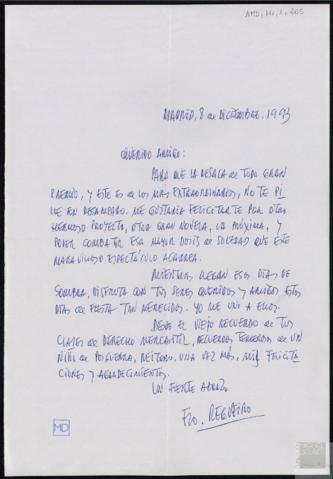 AMD, III, 1, 205
MADRID, 8 de DICIEMBRE, 1993
QUERIDO AMIGO:
PARA QUE LA RESACA de TODO GRAN
PREMIO, Y ESTE ES de LOS MAS EXTRAORDINARIOS, NO TE PI
LLE EN DESAMPARO. ME GUSTARIA FELICITARTE POR OTRO
HERMOSO PROYECTO, OTRA GRAN NOVELA, LA PRÓXIMA, Y
PODER COMBATIR ESA MAYOR DOSIS de SOLEDAD QUE ESTE
MARAVILLOSO ESPECTÁCULO ACARREA.
MIENTRAS LLEGAN ESOS DIAS DE
SOMBRA, DISFRUTA CON TUS SERES QUERIDOS Y AMIGOS ESTOS
DIAS de FIESTA TAN MERECIDOS. YO ME UNO A ELLOS.
DESDE EL VIEJO RECUERDO de TUS
CLASES de DERECHO MERCANTIL, RECUERDOS de UN
NIÑO de POSGUERRA, REITERO, UNA VEZ MÁS, MIS FELICITA
CIONES Y AGRADECIMIENTOS.
UN FUERTE ABRAZO
Fco. REGUEIRO
MD